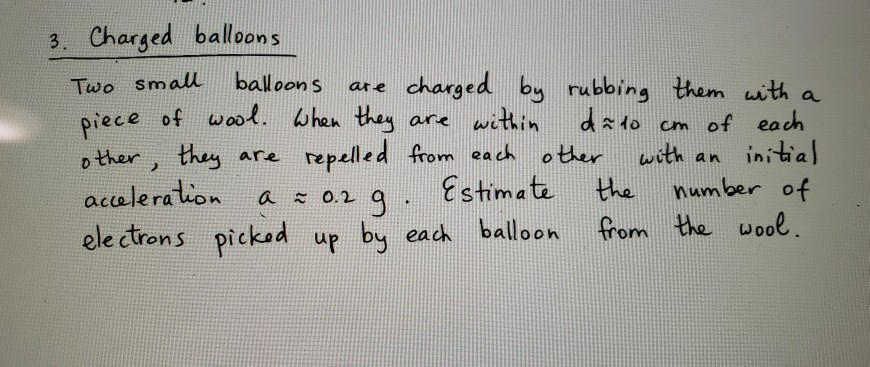 3. Charged balloons
Two small balloons are charged by rubbing them with a
piece of wool. When they are within d ≈ 10 cm of each
other, they are repelled from each other with an initial
acceleration a ≈ 0.2 g. Estimate the number of
electrons picked up by each balloon from the wool.